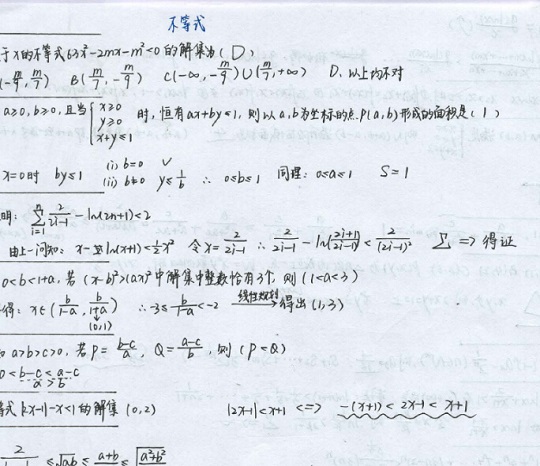 不等式
于x的不等式63x²-2mx-m²<0的解集为(D)
(-m/9, m/7) B(m/7, -m/9) C(-∞, -m/9)∪(m/7, +∞) D、以上均不对
a≥0, b≥0, 且当{x≥0 y≥0 x+y≤1 时, 恒有ax+by≤1, 则以a,b为坐标的点P(a,b)形成的面积是(1)
x=0时 by≤1 (i) b=0 ✓
(ii) b≠0 y≤1/b ∴ 0≤b≤1 同理: 0≤a≤1 S=1
明: ∑_{i=1}^{n} 2/(2i-1) - ln(2n+1)<2
由上一问知: x-ln(x+1)<1/2x² 令x=2/(2i-1) ∴ 2/(2i-1) - ln(2i+1)/(2i-1) < 2/(2i-1)² ∑ => 得证
0<b<1+a, 若(x-b)²>(ax)²中解集中整数恰有3个, 则(1<a<3)
得: x∈(b/(1-a), b/(1+a)) ∴ -3≤b/(1-a)<-2 线性规划→得出(1,3)
(0,1)
a>b>c>0, 若P=(b-c)/a, Q=(a-c)/b, 则(P<Q)
0<b-c<a-c
a>b
等式|2x-1|-x<1的解集(0,2) |2x-1|<x+1 <=> -(x+1)<2x-1<x+1
2 ≤√ab≤(a+b)/2≤√(a²+b²)